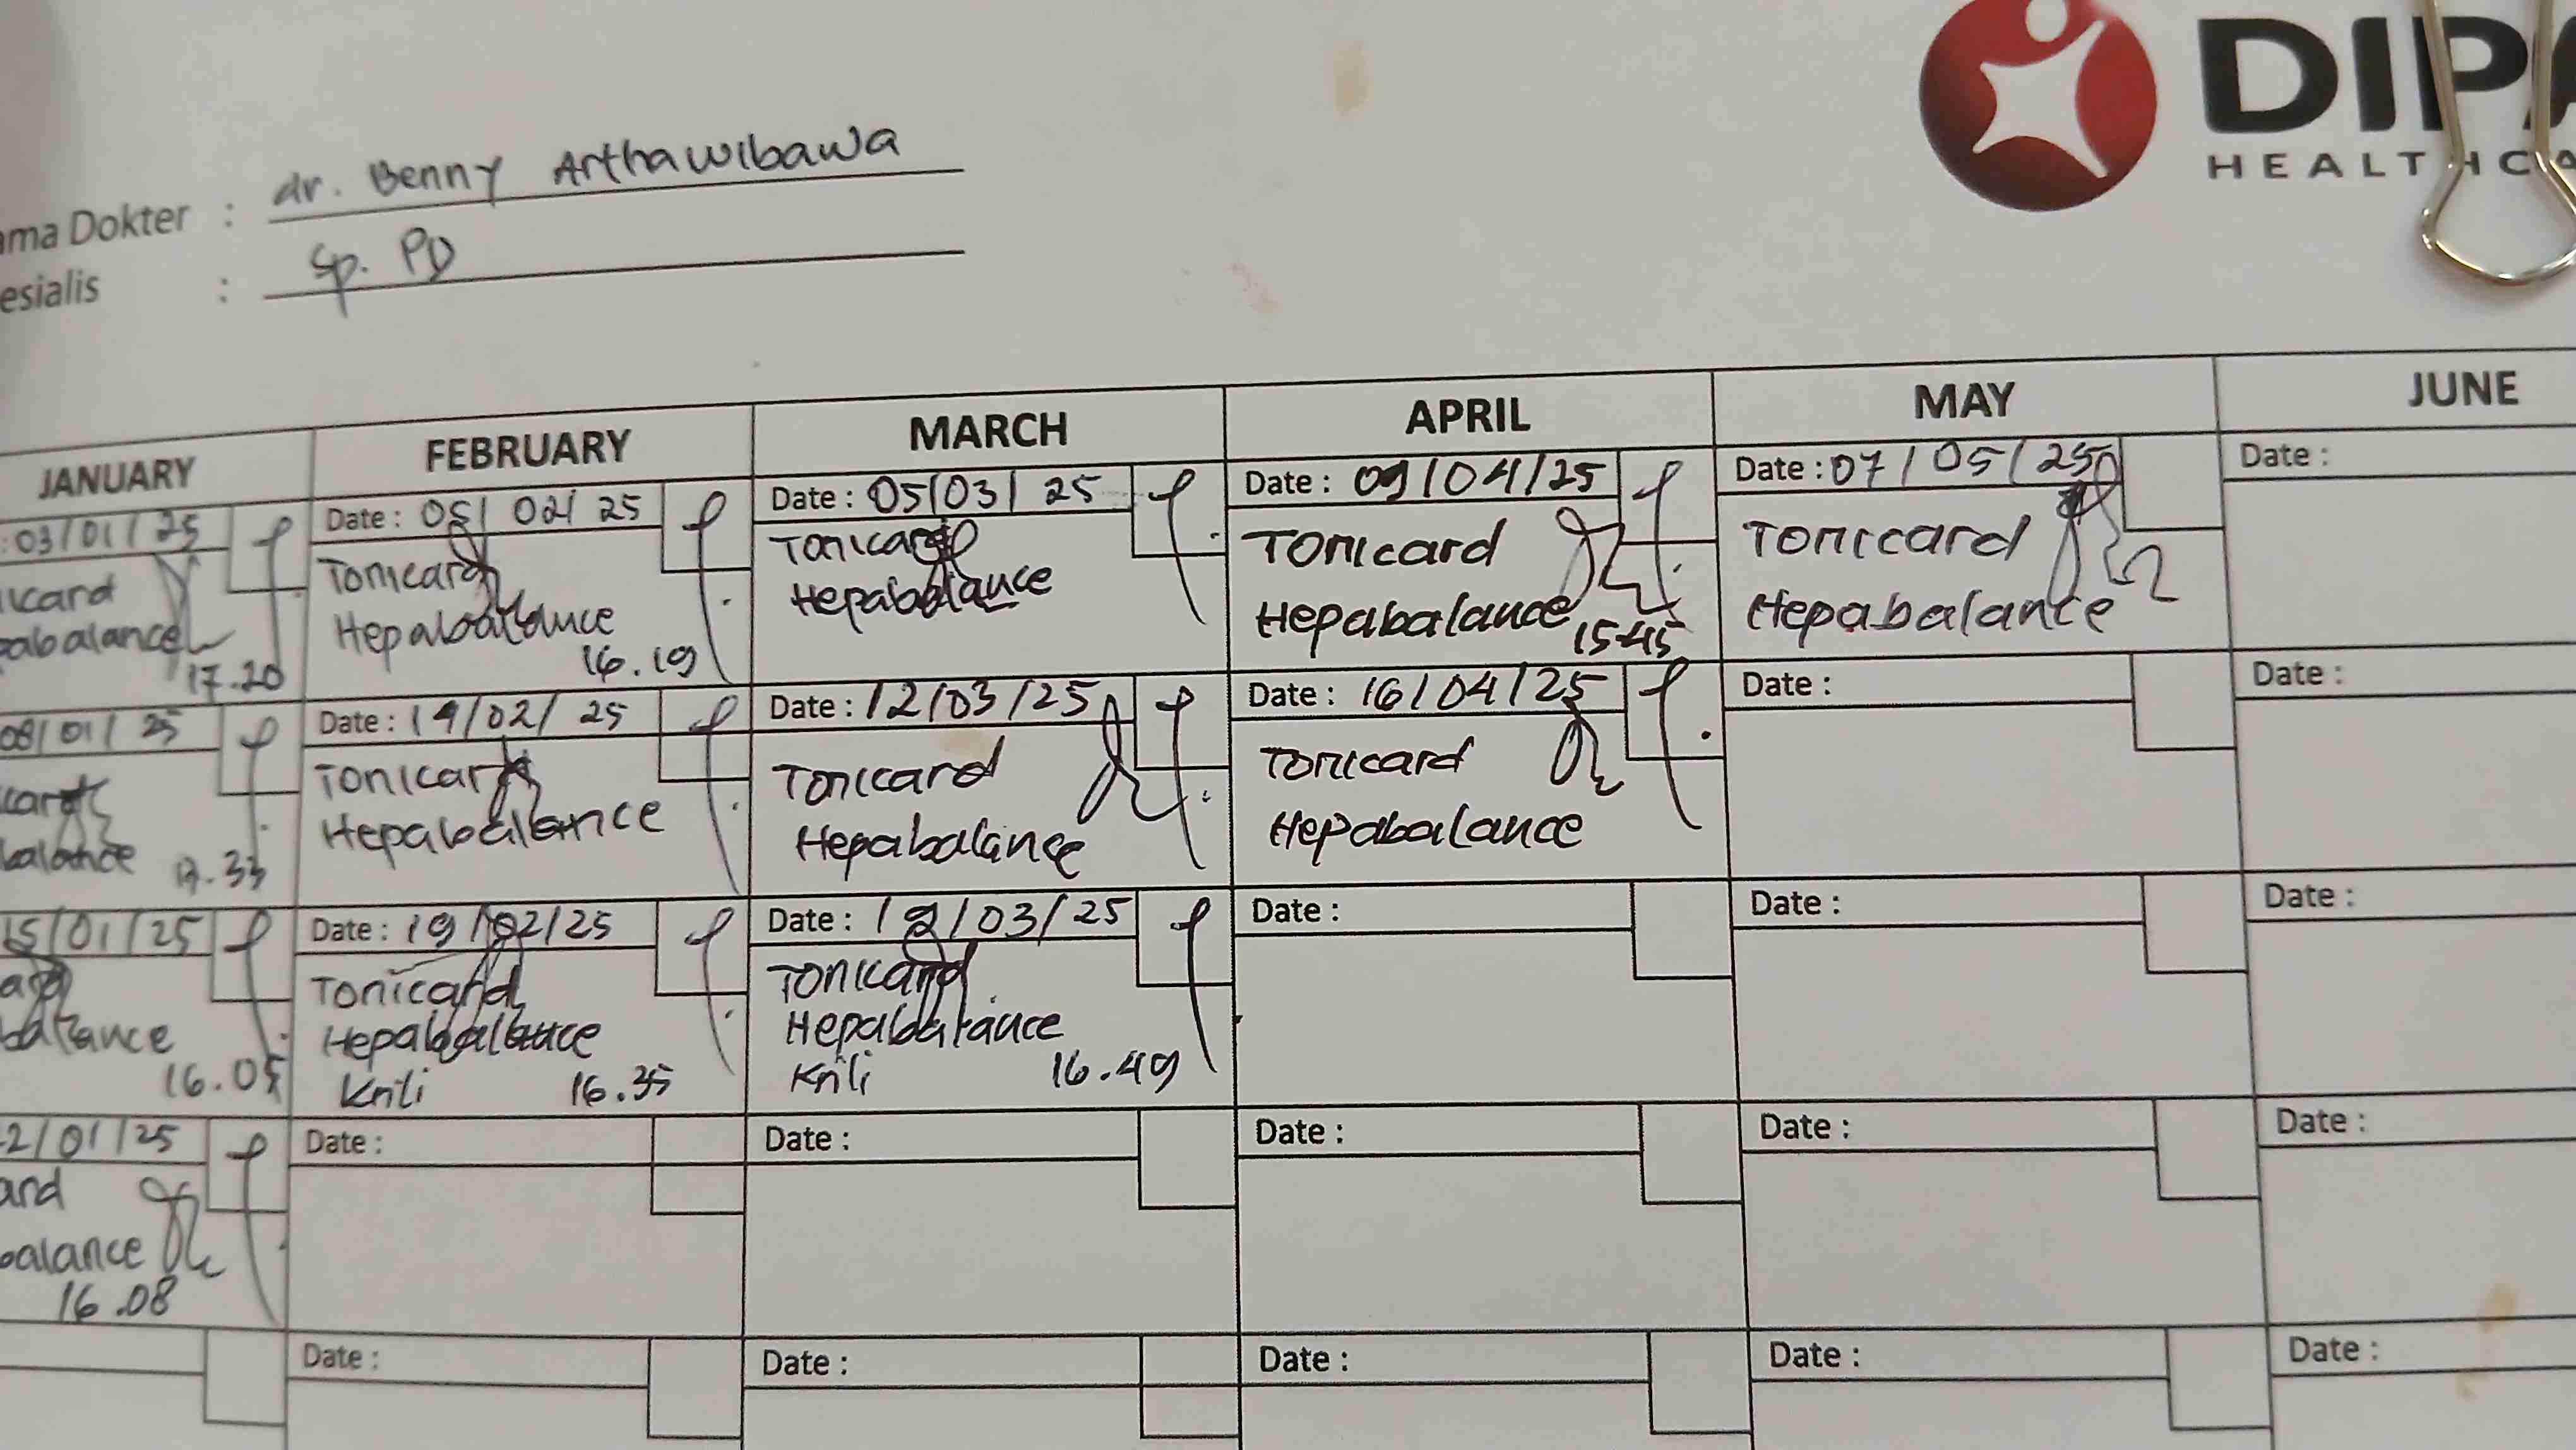 DIPA
HEALTHCA
ama Dokter : dr. Benny Arthawibawa
esialis : Sp. PD
JANUARY
FEBRUARY
MARCH
APRIL
MAY
JUNE
: 03/01/25
icard
pabalance
17.20
Date : 05/02/25
Tonicard
Hepabalance
16.19
Date : 05/03/25
Tonicard
Hepabalance
Date : 09/04/25
Tonicard
Hepabalance
15.45
Date : 07/05/25
Tonicard
Hepabalance
Date :
08/01/25
card
balance
Date : /02/25
Tonicard
Hepabalance
Date : 12/03/25
Tonicard
Hepabalance
Date : 16/04/25
Tonicard
Hepabalance
Date :
Date :
15/01/25
ard
balance
16.05
Date : 19/02/25
Tonicard
Hepabalance
Krili 16.35
Date : /03/25
Tonicard
Hepabalance
Krili 16.49
Date :
Date :
Date :
2/01/25
ard
balance
16.08
Date :
Date :
Date :
Date :
Date :
Date :
Date :
Date :
Date :
Date :